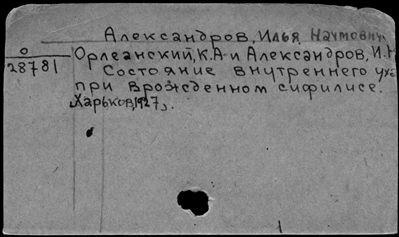 Александров, Илья Наумович.
О
28781
Орлеанский, К.А и Александров, И.Н
Состояние внутреннего уха
при врожденном сифилисе.
Харьков, 1927,.